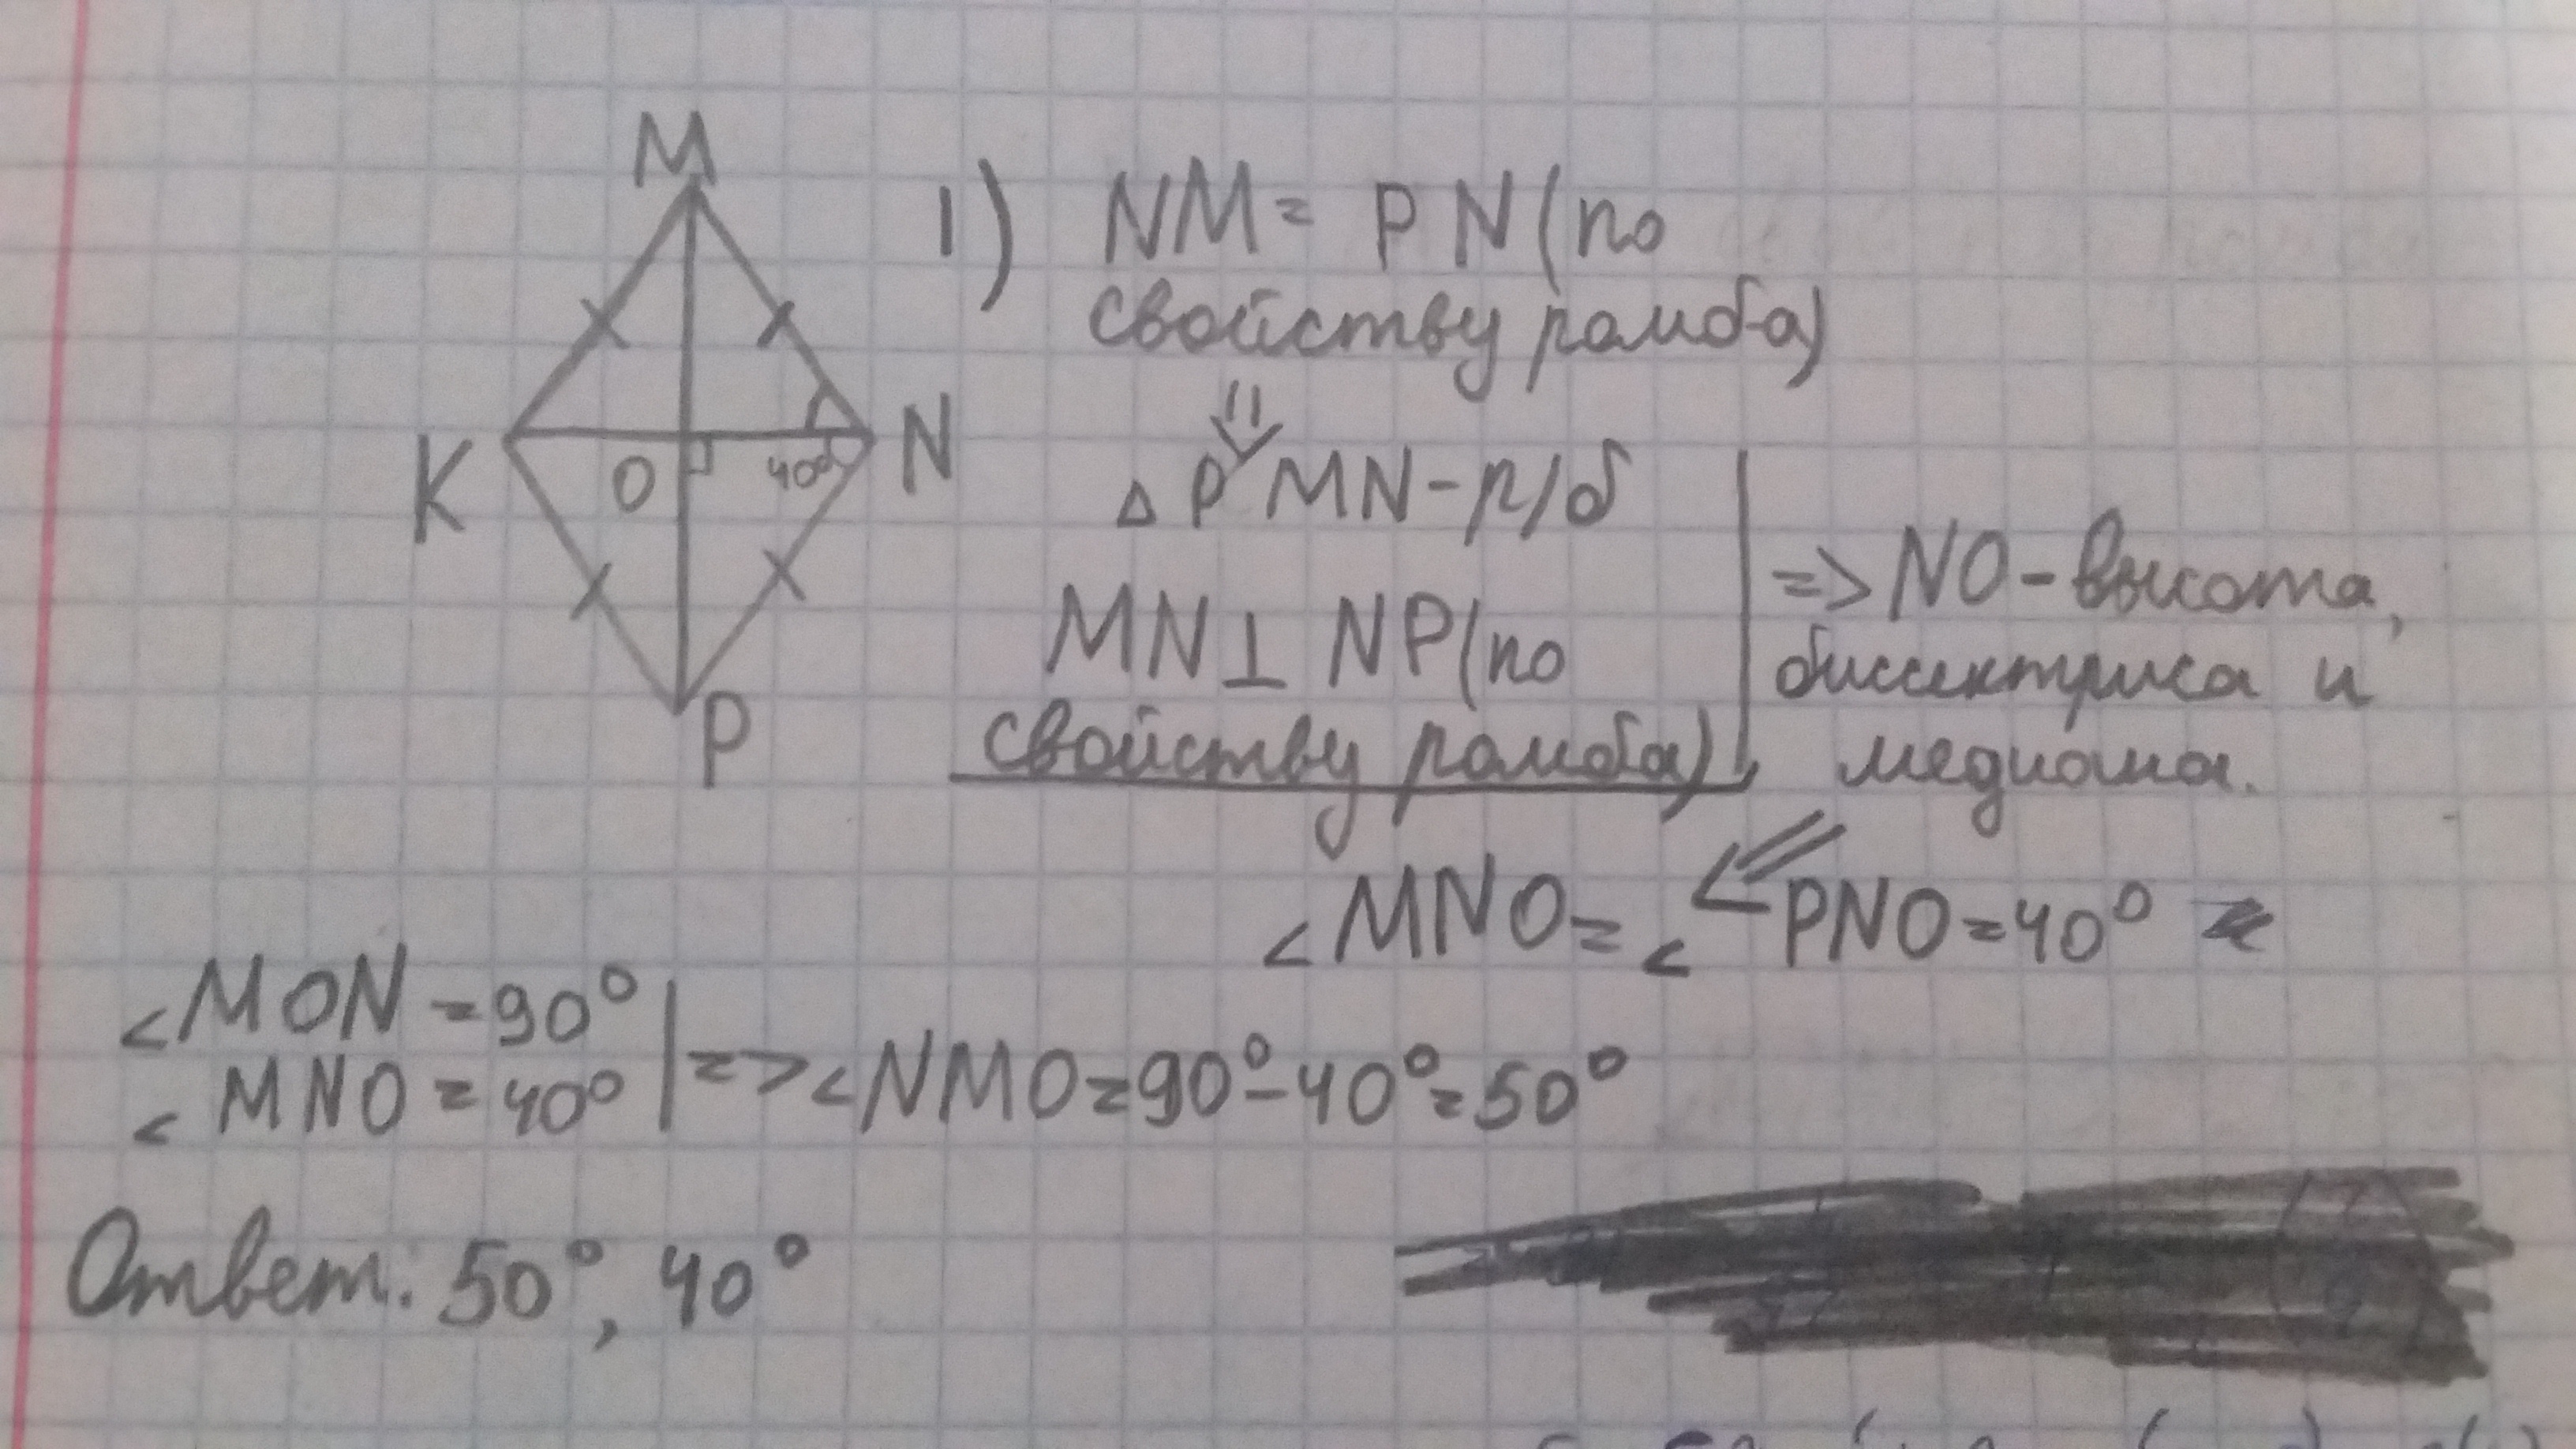 M
K
O
40°
N
P
1) NM = PN (по
свойству ромба)
⇓
△ PMN - р/б
MN ⊥ NP (по
свойству ромба)
=> NO - высота,
биссектриса и
медиана.
<MNO = < PNO = 40°
<MON = 90°
<MNO = 40°
=> <NMO = 90° - 40° = 50°
Ответ: 50°, 40°